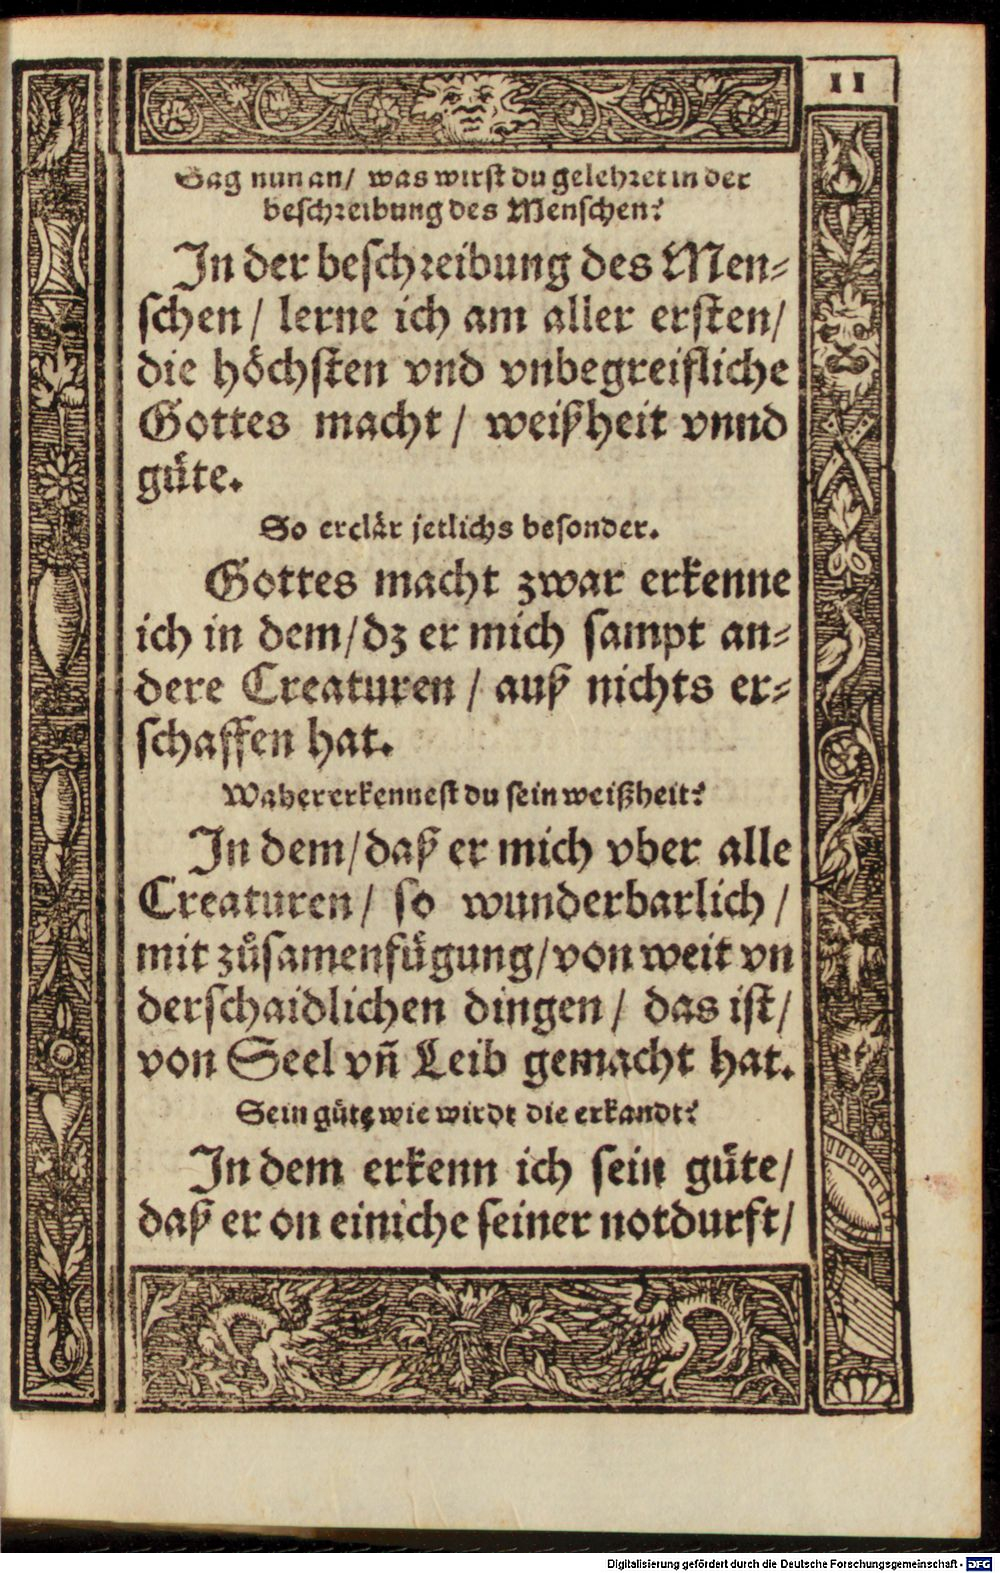 11
Sag nun an/ was wirst du gelehret in der
beschreibung des Menschen?
In der beschreibung des Men⸗
schen/ lerne ich am aller ersten/
die höchsten vnd vnbegreifliche
Gottes macht/ weißheit vnnd
güte.
So erclär jetlichs besonder.
Gottes macht zwar erkenne
ich in dem/ dz er mich sampt an⸗
dere Creaturen/ auß nichts er⸗
schaffen hat.
Waher erkennest du sein weißheit?
In dem/ daß er mich vber alle
Creaturen/ so wunderbarlich/
mit zůsamenfügung/ von weit vn
derschaidlichen dingen/ das ist/
von Seel vñ Leib gemacht hat.
Sein güte wie wirdt die erkandt?
In dem erkenn ich sein güte/
daß er on einiche seiner notdurft/
Digitalisierung gefördert durch die Deutsche Forschungsgemeinschaft - DFG